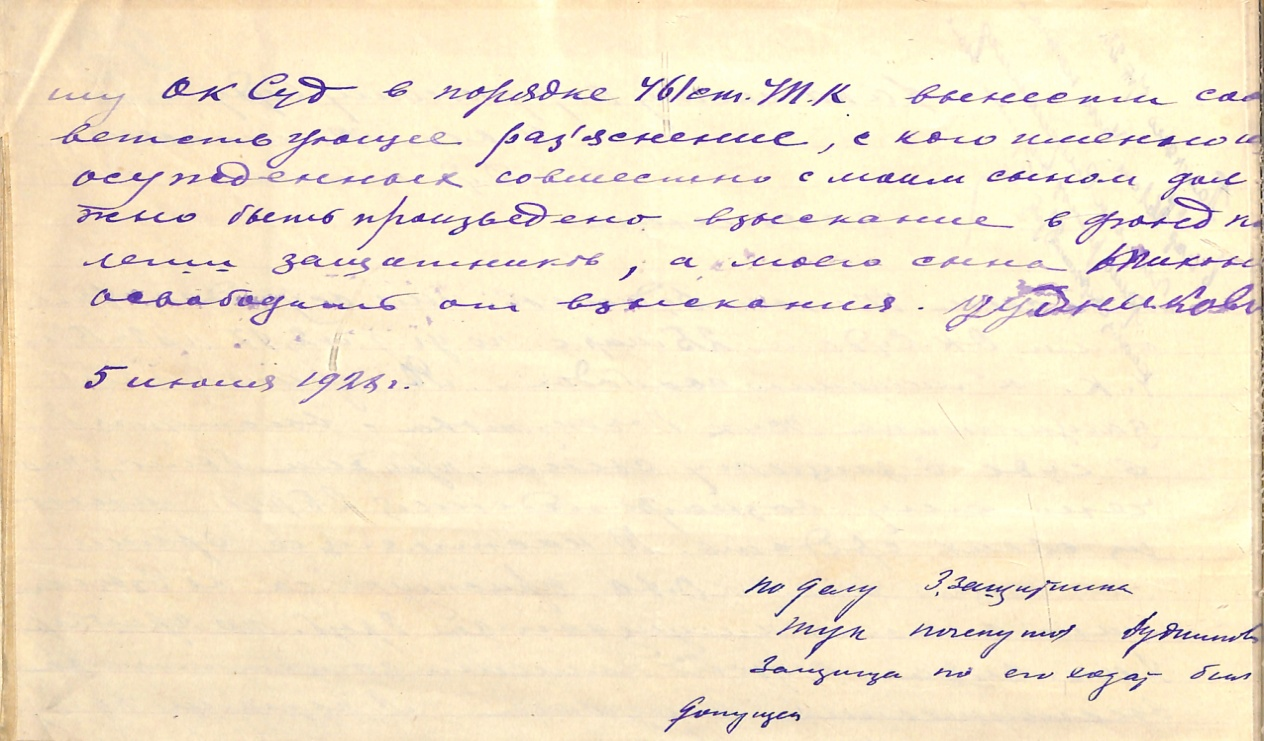 шу ОК Суд в порядке 461 ст. У.П.К вынести соо
ветствующее раз'яснение, с кого именно и
осужденных совместно с моим сыном дол
жно быть произведено взыскание в фонд
защитников, а моего сына
освободить от взыскания.
5 июля 192 г.
по делу 3 защитника
Защита по его ходат был
допущен